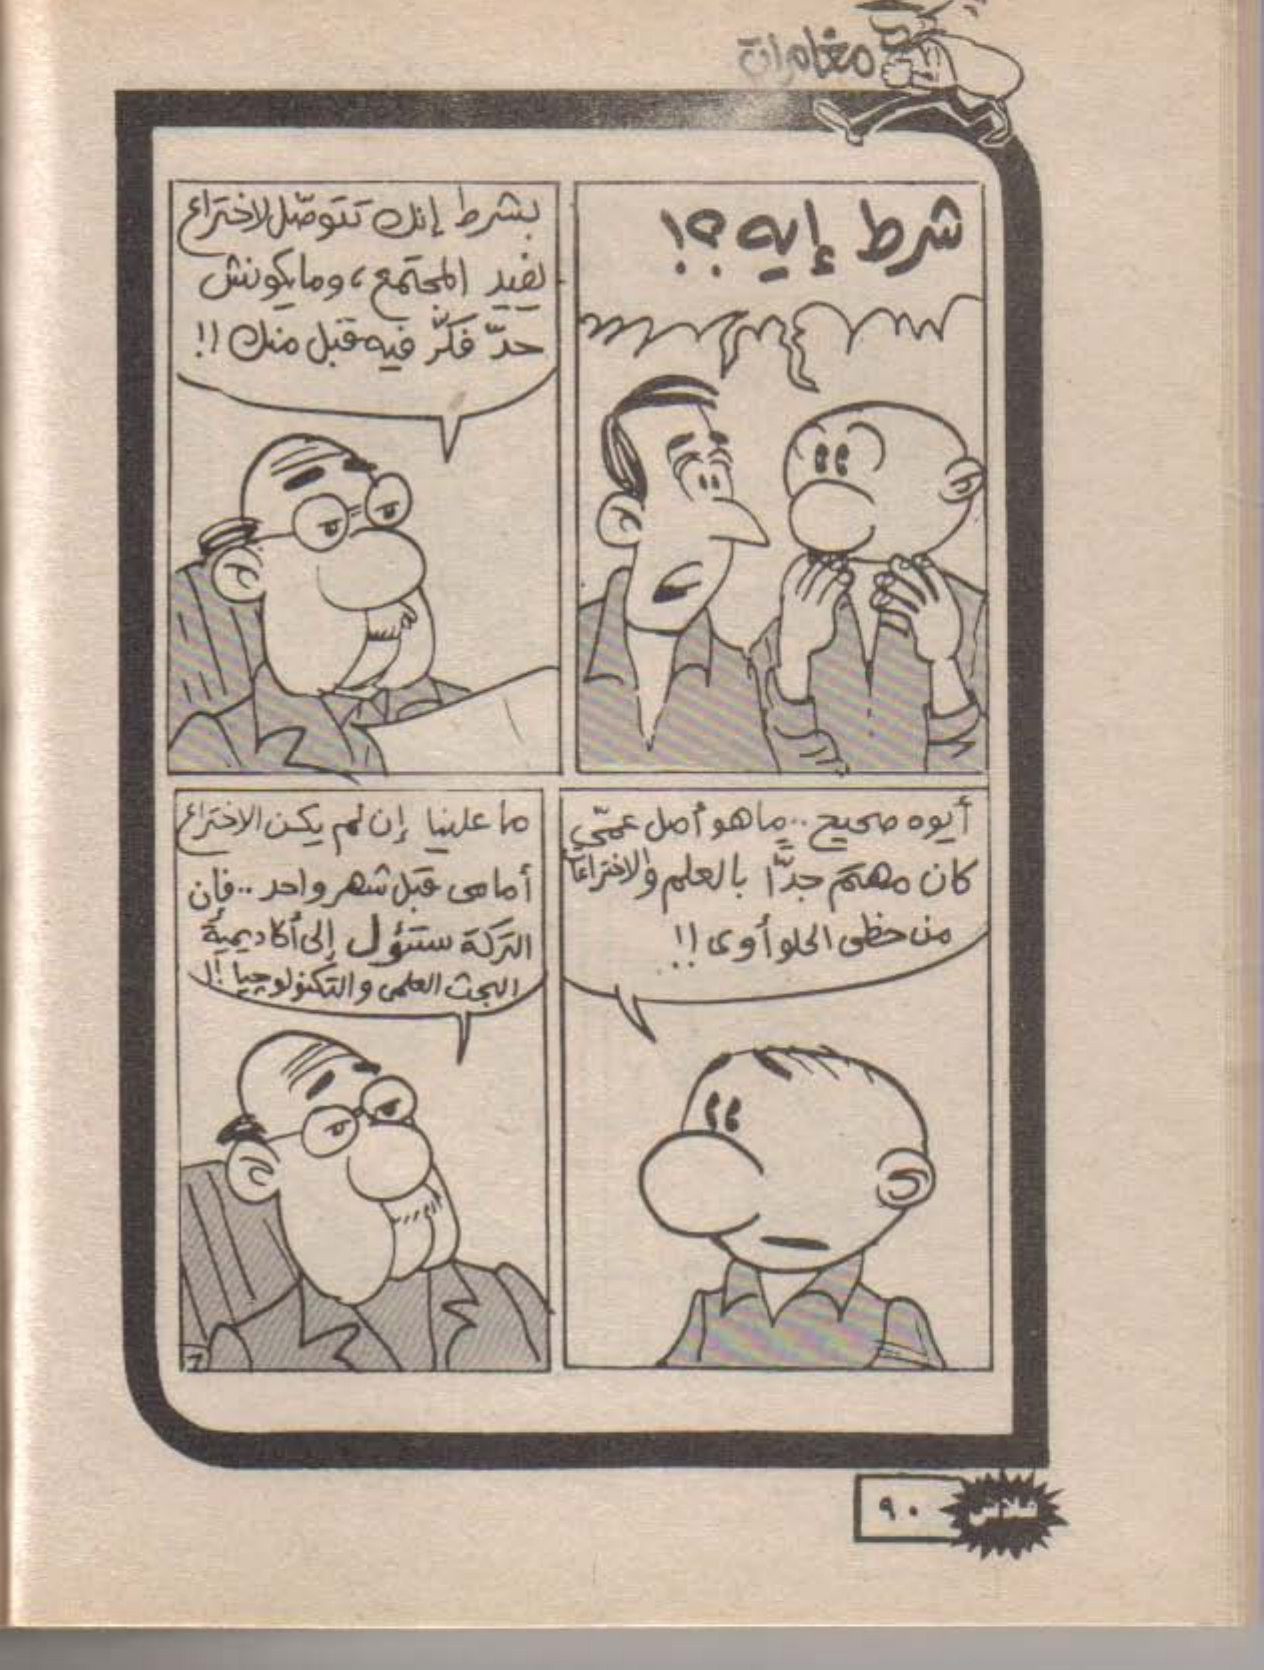 مغامرات
شرط إيه؟!
بشرط إنك تتوصّل لاختراع
يفيد المجتمع، ومايكونش
حدّ فكّر فيه قبل منك !!
أيوه صحيح.. ماهو أصل عمّي
كان مهتم جدًّا بالعلم والاختراعات
من حظى الحلو أوى !!
ما علينا إن لم يكن الاختراع
أمامى قبل شهر واحد.. فإن
التركة ستئول إلى أكاديمية
البحث العلمى والتكنولوجيا !!
فلاش
٩٠